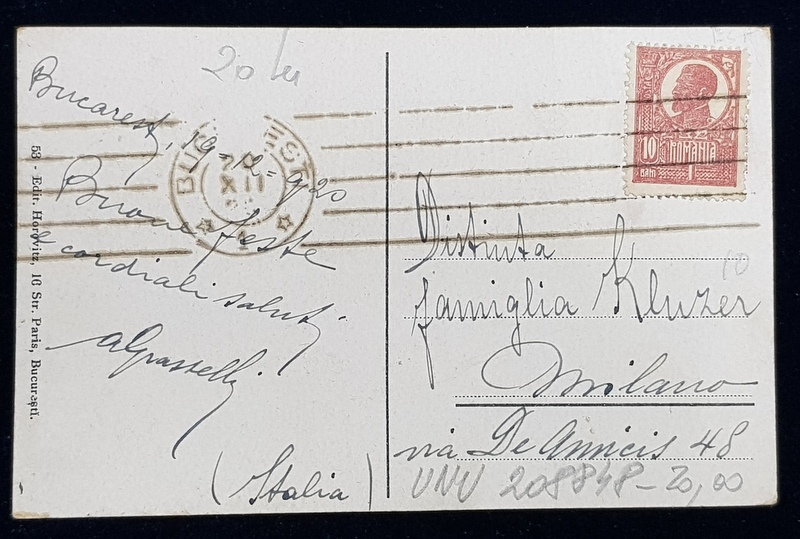 20 lei
Bucarest, 19-12-920
Buone feste
e cordiali saluti
(Italia)
53 - Edit. Horovitz, 16 Str. Paris, București.
BUC EST
XII
10
BANI
ROMANIA
1
Distinta
famiglia Kluzer
10
Milano
via De Amicis 48
UNU 208848-20,00